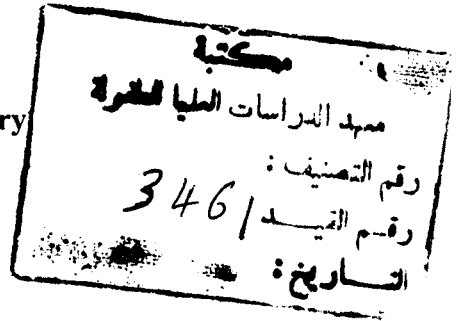 مكتبة
معهد الدراسات العليا للطفولة
رقم التصنيف :
رقم القيد / 346
التاريخ :
ry